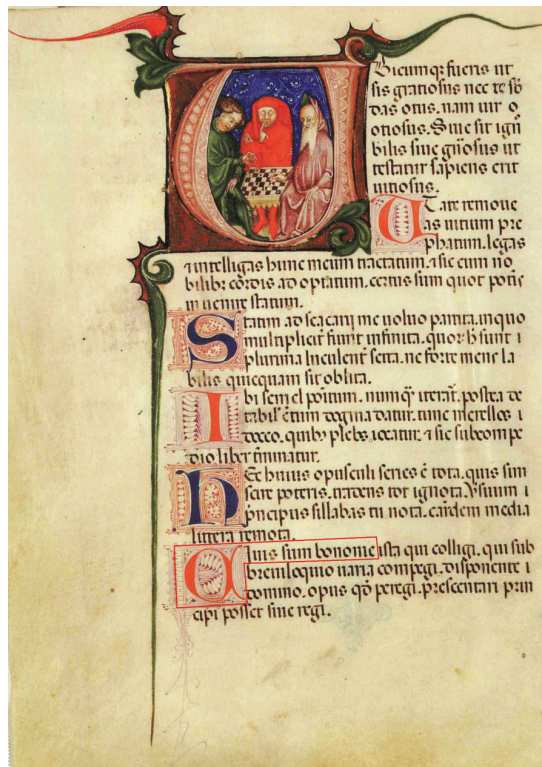 Ubicumq; fueris ut
sis gratiosus nec te sb
das otiis. nam uir o
otiosus. Siue sit igno
bilis siue gn̄osus ut
testatur sapiens erit
uitiosus.
Ut a te remoue
as uitium pre
phatum. legas
⁊ intelligas hunc meum tractatum. ⁊ sic cum no
bilibꝫ cordis ad optatum. certus sum quot potis
inuenire statum.
Statim ad scacarij me uoluo partita. in quo
multiplicit̄ sunt infinita. quorꝫ sunt i
plurima luculent̄ scita. ne forte mens la
bilis quicquam sit oblita.
Ibi semel positum. numq̄ iterat̄. postea de
tabul̄ c̄tum dogma datur. tunc merellos i
doceo. quibꝫ plebs iocatur. ⁊ sic sub compe
dio liber t̄minatur.
Hec huius opusculi series ē tota. quis sim
scire poteris. tradens tot ignota. Ūsuum i
principiis sillabas tu nota. earūdem media
littera remota.
Ciuis sum bononie ista qui collegi. qui sub
breuiloquio uaria compegi. disponente i
domino. opus qd̄ peregi. presentari prin
cipi posset siue regi.